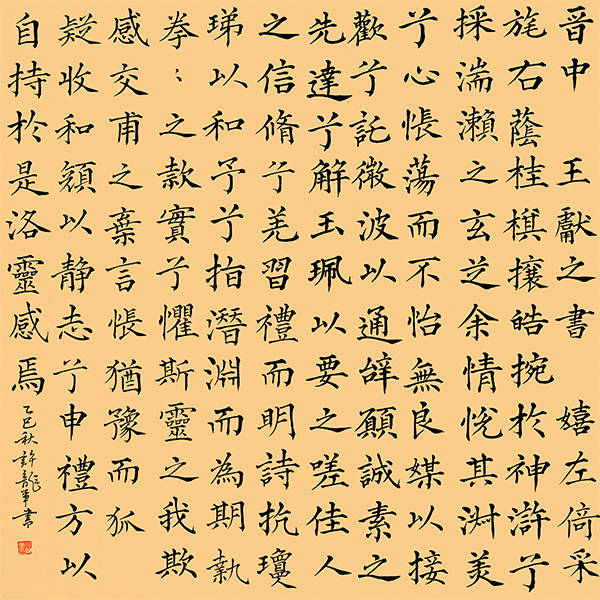 晉中 王獻之書 嬉左倚采
旄右蔭桂棋攘皓捥於神滸兮
採湍瀨之玄芝余情悅其淑美
兮心悵蕩而不怡無良媒以接
歡兮託微波以通辭願誠素之
先達兮解玉珮以要之嗟佳人
之信脩兮羌習禮而明詩抗瓊
珶以和予兮指潛淵而為期執
拳〻之款實兮懼斯靈之我欺
感交甫之棄言悵猶豫而狐
疑收和顏以静志兮申禮方以
自持於是洛靈感焉
乙巳秋許龍平書